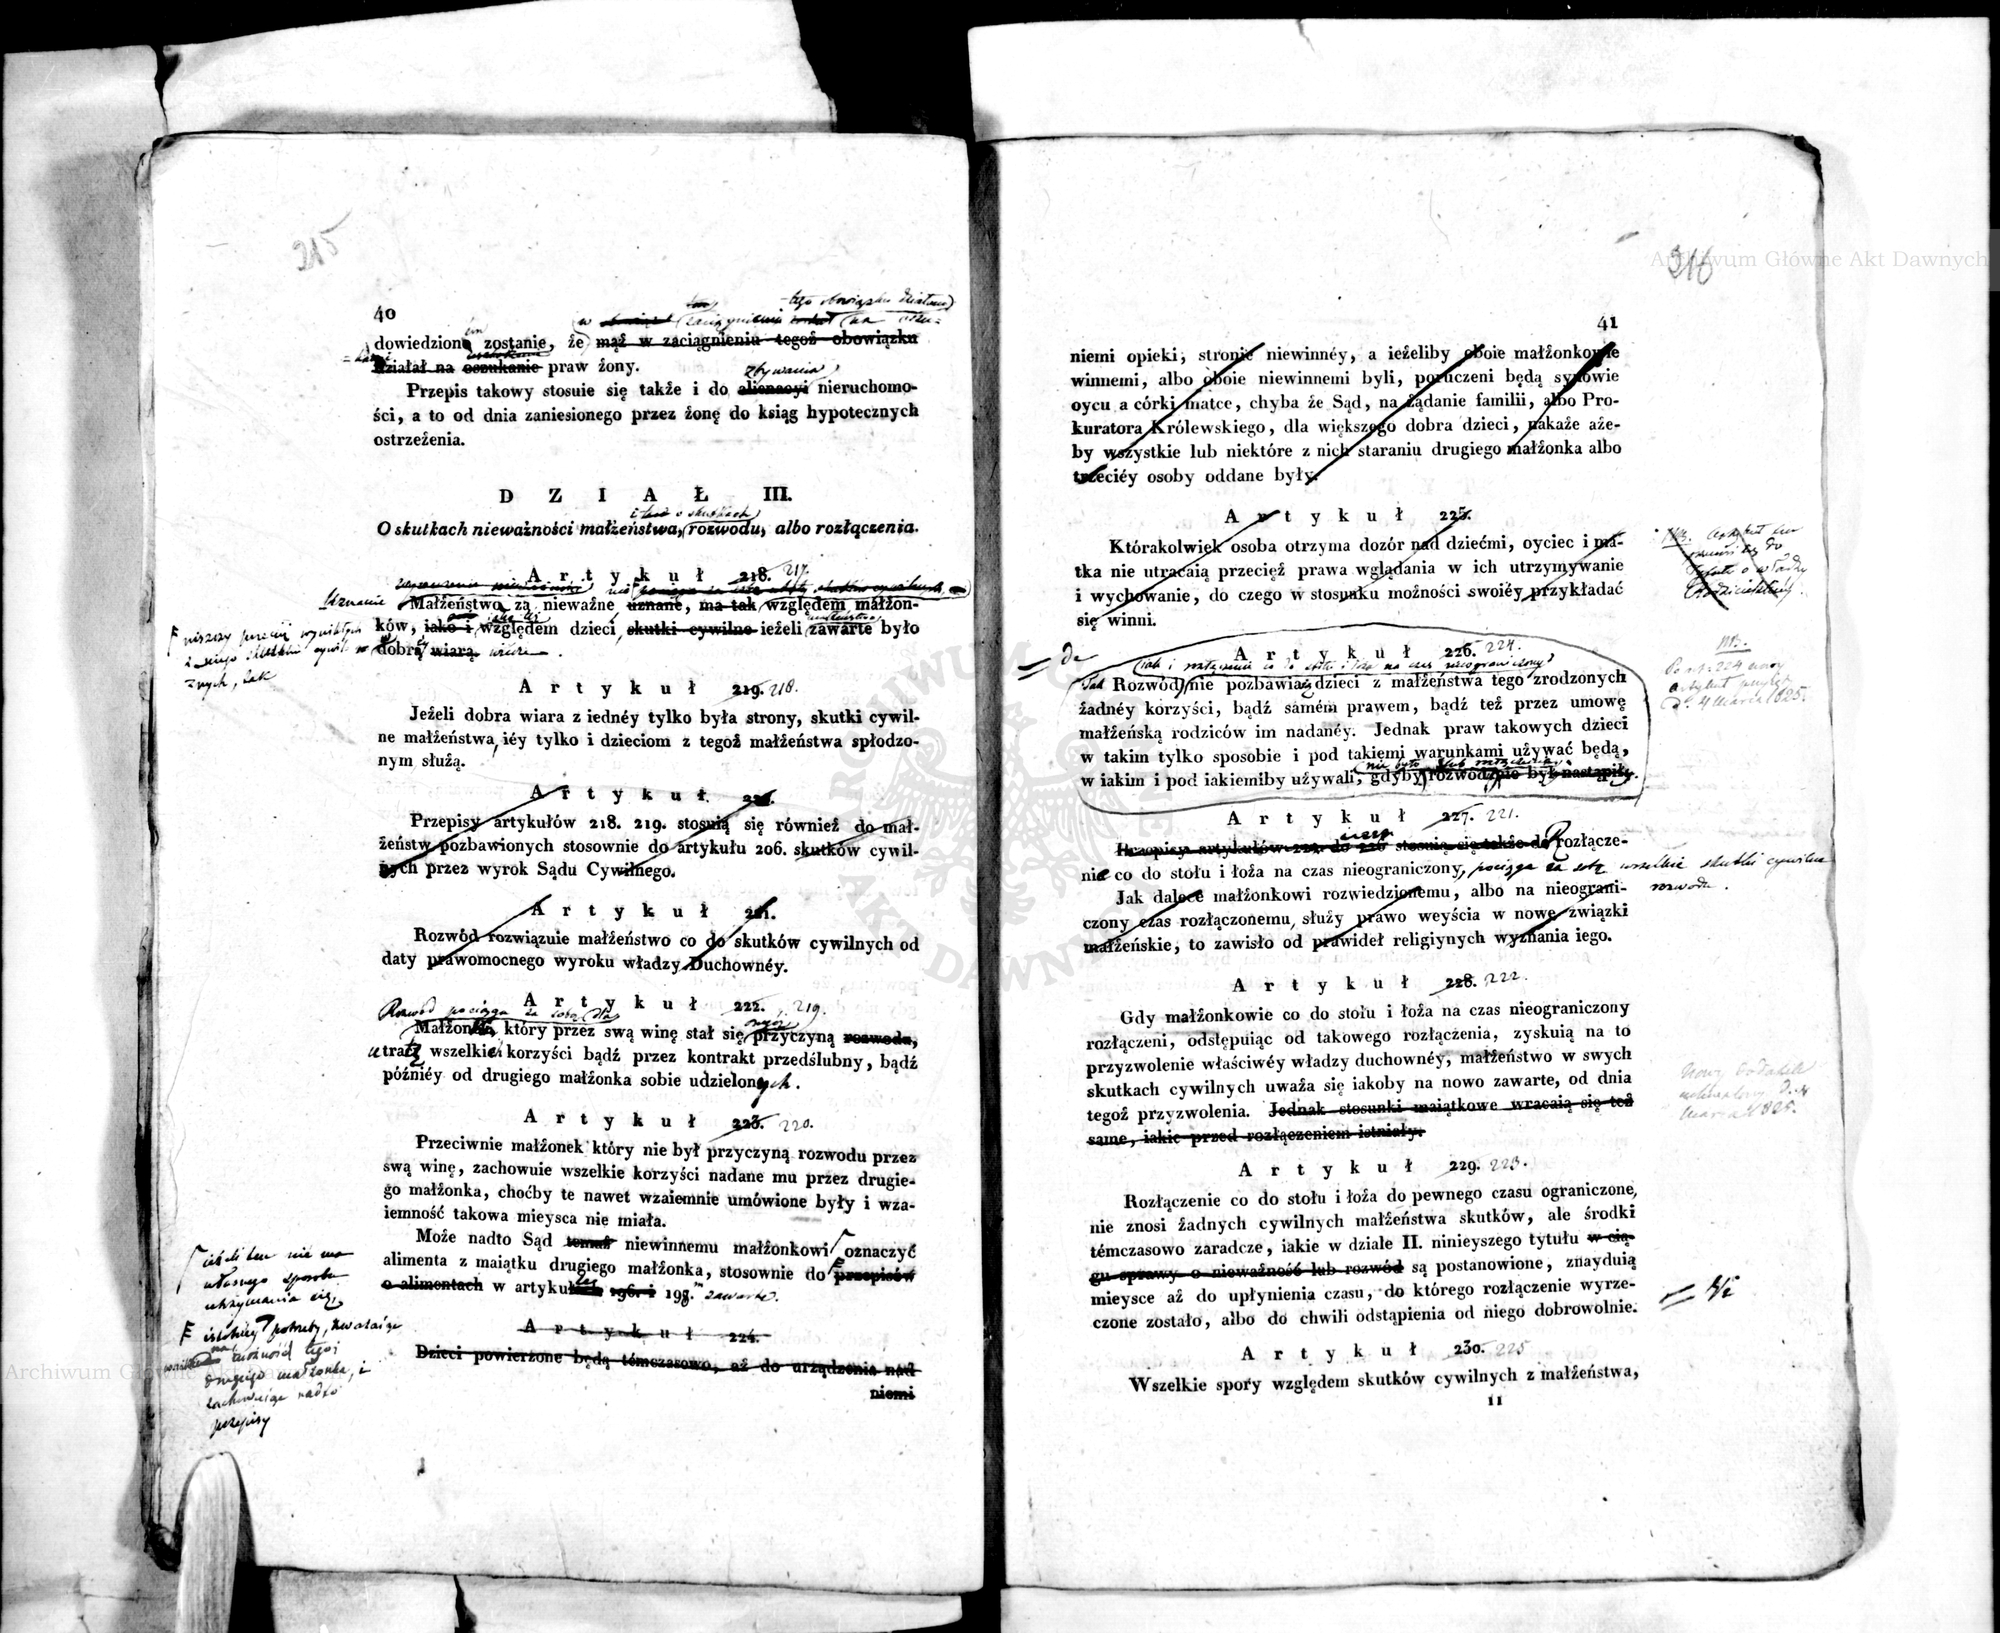 215
40
dowiedzione zostanie, że mąż w zaciągnieniu tegoż obowiązku
działał na oszukanie praw żony.
zbywania
Przepis takowy stosuie się także i do alienacyi nieruchomo-
ści, a to od dnia zaniesionego przez żonę do ksiąg hypotecznych
ostrzeżenia.
DZIAŁ III.
i też o skutkach
O skutkach nieważności małżeństwa, rozwodu, albo rozłączenia.
Artykuł 218. 217.
Uznanie
Małżeństwo za nieważne uznane, ma tak względem małżon-
ków, iako i względem dzieci skutki cywilne ieżeli zawarte było
dobrą wiarą.
Artykuł 219. 218.
Jeżeli dobra wiara z iednéy tylko była strony, skutki cywil-
ne małżeństwa, iéy tylko i dzieciom z tegoż małżeństwa spłodzo-
nym służą.
Artykuł
Przepisy artykułów 218. 219. stosuią się również do mał-
żeństw pozbawionych stosownie do artykułu 206. skutków cywil-
nych przez wyrok Sądu Cywilnego.
Artykuł 221.
Rozwód rozwiązuie małżeństwo co do skutków cywilnych od
daty prawomocnego wyroku władzy Duchownéy.
Artykuł 222. 219.
Rozwód pociąga za sobą dla
Małżonka, który przez swą winę stał się przyczyną rozwodu,
utratę wszelkiéi korzyści bądź przez kontrakt przedślubny, bądź
późniéy od drugiego małżonka sobie udzielonych.
Artykuł 223. 220.
Przeciwnie małżonek który nie był przyczyną rozwodu przez
swą winę, zachowuie wszelkie korzyści nadane mu przez drugie-
go małżonka, choćby te nawet wzaiemnie umówione były i wza-
iemność takowa mieysca nie miała.
Może nadto Sąd temuż niewinnemu małżonkowi oznaczyć
alimenta z maiątku drugiego małżonka, stosownie do przepisów
o alimentach w artykule 196. i 198. zawarte.
ieśli ten nie ma
własnego sposobu
utrzymania się,
istotnéy potrzeby, zważaiąc
na możność tegoż
drugiego małżonka, i
zachowuiąc nadto
przepisy
Artykuł 224.
Dzieci powierzone będą témczasowo, aż do urządzenia nad
niemi
316
41
niemi opieki, stronie niewinnéy, a ieżeliby oboie małżonkowie
winnemi, albo oboie niewinnemi byli, poruczeni będą synowie
oycu a córki matce, chyba że Sąd, na żądanie familii, albo Pro-
kuratora Królewskiego, dla większego dobra dzieci, nakaże aże-
by wszystkie lub niektóre z nich staraniu drugiego małżonka albo
trzeciéy osoby oddane były.
Artykuł 225.
Którakolwiek osoba otrzyma dozór nad dziećmi, oyciec i ma-
tka nie utracaią przecięż prawa wglądania w ich utrzymywanie
i wychowanie, do czego w stosunku możności swoiéy przykładać
się winni.
Artykuł 226. 224.
iak i rozłączenie co do stołu i łoża na czas nieograniczony
Tak Rozwód nie pozbawiaią dzieci z małżeństwa tego zrodzonych
żadnéy korzyści, bądź samém prawem, bądź też przez umowę
małżeńską rodziców im nadanéy. Jednak praw takowych dzieci
w takim tylko sposobie i pod takiemi warunkami używać będą,
nie było
w iakim i pod iakiemiby używali, gdyby rozwód nie był nastąpił.
NB.
Po art. 224 nowy
artykuł przyięty
d. 4 Marca 1825.
Artykuł 227. 221.
Przepisy artykułów 222. do 226 stosuią się także do Rozłącze-
nie co do stołu i łoża na czas nieograniczony, pociąga za sobą wszelkie skutki cywilne
rozwodu.
Jak dalece małżonkowi rozwiedzionemu, albo na nieograni-
czony czas rozłączonemu, służy prawo weyścia w nowe związki
małżeńskie, to zawisło od prawideł religiynych wyznania iego.
Artykuł 228. 222.
Gdy małżonkowie co do stołu i łoża na czas nieograniczony
rozłączeni, odstępuiąc od takowego rozłączenia, zyskuią na to
przyzwolenie właściwéy władzy duchownéy, małżeństwo w swych
skutkach cywilnych uważa się iakoby na nowo zawarte, od dnia
tegoż przyzwolenia. Jednak stosunki maiątkowe wracaią się też
same, iakie przed rozłączeniem istniały.
Artykuł 229. 223.
Rozłączenie co do stołu i łoża do pewnego czasu ograniczone,
nie znosi żadnych cywilnych małżeństwa skutków, ale środki
témczasowo zaradcze, iakie w dziale II. ninieyszego tytułu w cią-
gu sprawy o nieważność lub rozwód są postanowione, znayduią
mieysce aż do upłynienia czasu, do którego rozłączenie wyrze-
czone zostało, albo do chwili odstąpienia od niego dobrowolnie.
Artykuł 230. 225
Wszelkie spory względem skutków cywilnych z małżeństwa,
11
Archiwum Główne Akt Dawnych
Archiwum Główne Akt Dawnych
ARCHIWUM GŁÓWNE AKT DAWNYCH